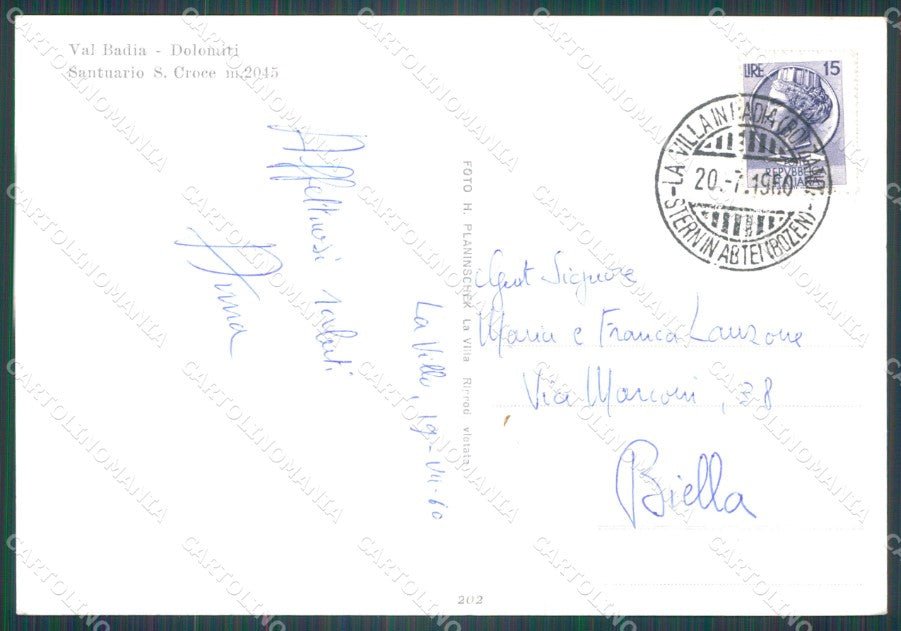 Val Badia - Dolomiti
Santuario S. Croce m.2045
LIRE 15
REPVBBLICA
ITALIANA
-LA VILLA IN BADIA (BOLZANO)-
20.-7.1960
STERN IN ABTEI (BOZEN)
Affettuosi saluti
La Villa, 19-VII-60
FOTO H. PLANINSCHEK La Villa Riprod. vietata
Gent Signore
Maria e Franca Lanzone
Via Marconi, 38
Biella
202
CARTOLINOMANIA